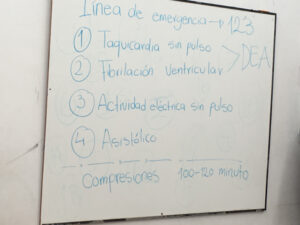 Línea de emergencia → 123
1 Taquicardia sin pulso
2 Fibrilación ventricular
> DEA
3 Actividad eléctrica sin pulso
4 Asistólico
Compresiones 100-120 minuto